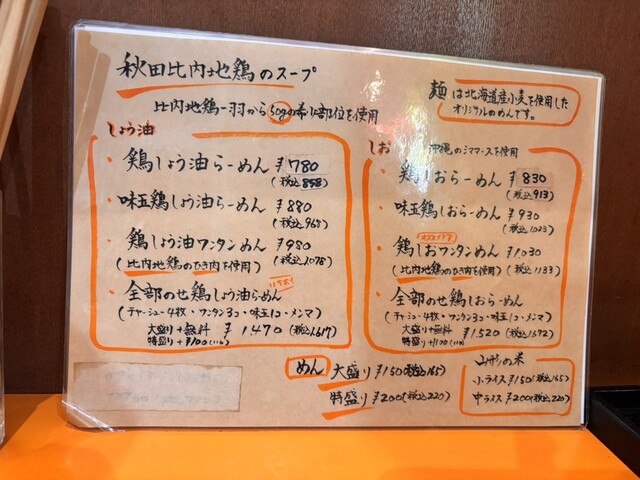 秋田比内地鶏のスープ
比内地鶏一羽から50gの希少部位を使用
麺は北海道産小麦を使用した
オリジナルのめんです。
しょう油
鶏しょう油らーめん ¥780
(税込858)
味玉鶏しょう油らーめん ¥880
(税込968)
鶏しょう油ワンタンめん ¥980
(比内地鶏のひき肉を使用) (税込1078)
全部のせ鶏しょう油らーめん
(チャーシュー4枚・ワンタン3コ・味玉1コ・メンマ)
大盛り+無料 ¥1470(税込1617)
特盛り+¥100(110)
しお 沖縄のシママースを使用
鶏しおらーめん ¥830
(税込913)
味玉鶏しおらーめん ¥930
(税込1023)
オススメ
鶏しおワンタンめん ¥1030
(比内地鶏のひき肉を使用) (税込1133)
全部のせ鶏しおらーめん
(チャーシュー4枚・ワンタン3コ・味玉1コ・メンマ)
大盛り+無料 ¥1520(税込1672)
特盛り+¥100(110)
めん 大盛り ¥150(税込165)
特盛り ¥200(税込220)
山形の米
小ライス ¥150(税込165)
中ライス ¥200(税込220)